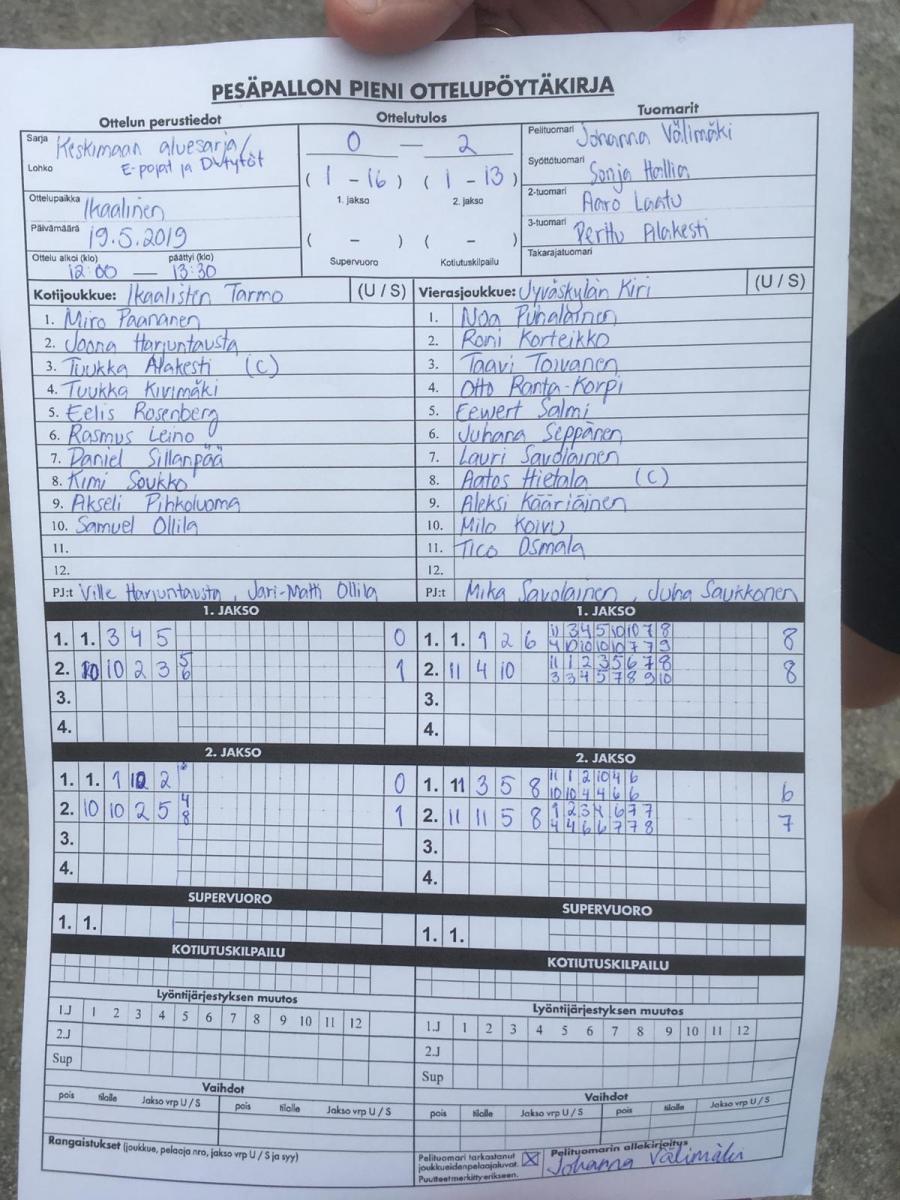 PESÄPALLON PIENI OTTELUPÖYTÄKIRJA
Ottelun perustiedot
Sarja Keskimaan aluesarja/
Lohko E-pojat ja D-tytöt
Ottelupaikka Ikaalinen
Päivämäärä 19.5.2019
Ottelu alkoi (klo) päättyi (klo)
12:00 — 13:30
Ottelutulos
0 — 2
( 1 - 16 ) ( 1 - 13 )
1. jakso 2. jakso
( - ) ( - )
Supervuoro Kotiutuskilpailu
Tuomarit
Pelituomari Johanna Välimäki
Syöttötuomari Sonja Hallia
2-tuomari Aaro Laatu
3-tuomari Perttu Alakesti
Takarajatuomari
Kotijoukkue: Ikaalisten Tarmo (U / S)
1. Miro Paananen
2. Joona Harjuntausta
3. Tuukka Alakesti (C)
4. Tuukka Kivimäki
5. Eelis Rosenberg
6. Rasmus Leino
7. Daniel Sillanpää
8. Kimi Soukko
9. Akseli Pihkoluoma
10. Samuel Ollila
11.
12.
PJ:t Ville Harjuntausta, Jari-Matti Ollila
Vierasjoukkue: Jyväskylän Kiri (U / S)
1. Noa Puhalainen
2. Roni Korteikko
3. Taavi Toivanen
4. Otto Ranta-Korpi
5. Eewert Salmi
6. Juhana Seppänen
7. Lauri Savolainen
8. Aatos Hietala (C)
9. Aleksi Kääriäinen
10. Milo Koivu
11. Tico Osmala
12.
PJ:t Mika Savolainen, Juha Saukkonen
1. JAKSO
1. 1. 3 4 5 0
2. 10 10 2 3 5 1
6
3.
4.
2. JAKSO
1. 1. 1 10 2 0
2. 10 10 2 5 4 1
8
3.
4.
SUPERVUORO
1. 1.
KOTIUTUSKILPAILU
Lyöntijärjestyksen muutos
1.J 1 2 3 4 5 6 7 8 9 10 11 12
2.J
Sup
Vaihdot
pois tilalle Jakso vrp U / S pois tilalle Jakso vrp U / S
Rangaistukset (joukkue, pelaaja nro, jakso vrp U / S ja syy)
1. JAKSO
1. 1. 1 2 6 11 3 4 5 10 10 7 8 8
4 10 10 10 10 7 7 9
2. 11 4 10 11 1 2 3 5 6 7 8 8
3 3 4 5 7 8 9 10
3.
4.
2. JAKSO
1. 11 3 5 8 11 1 2 10 4 6 6
10 10 4 4 6 6
2. 11 11 5 8 1 2 3 4 6 7 7 7
4 4 6 6 7 7 8
3.
4.
SUPERVUORO
1. 1.
KOTIUTUSKILPAILU
Lyöntijärjestyksen muutos
1.J 1 2 3 4 5 6 7 8 9 10 11 12
2.J
Sup
Vaihdot
pois tilalle Jakso vrp U / S pois tilalle Jakso vrp U / S
Pelituomari tarkastanut
joukkueidenpelaajaluvat. X
Puutteet merkitty erikseen.
Pelituomarin allekirjoitus
Johanna Välimäki